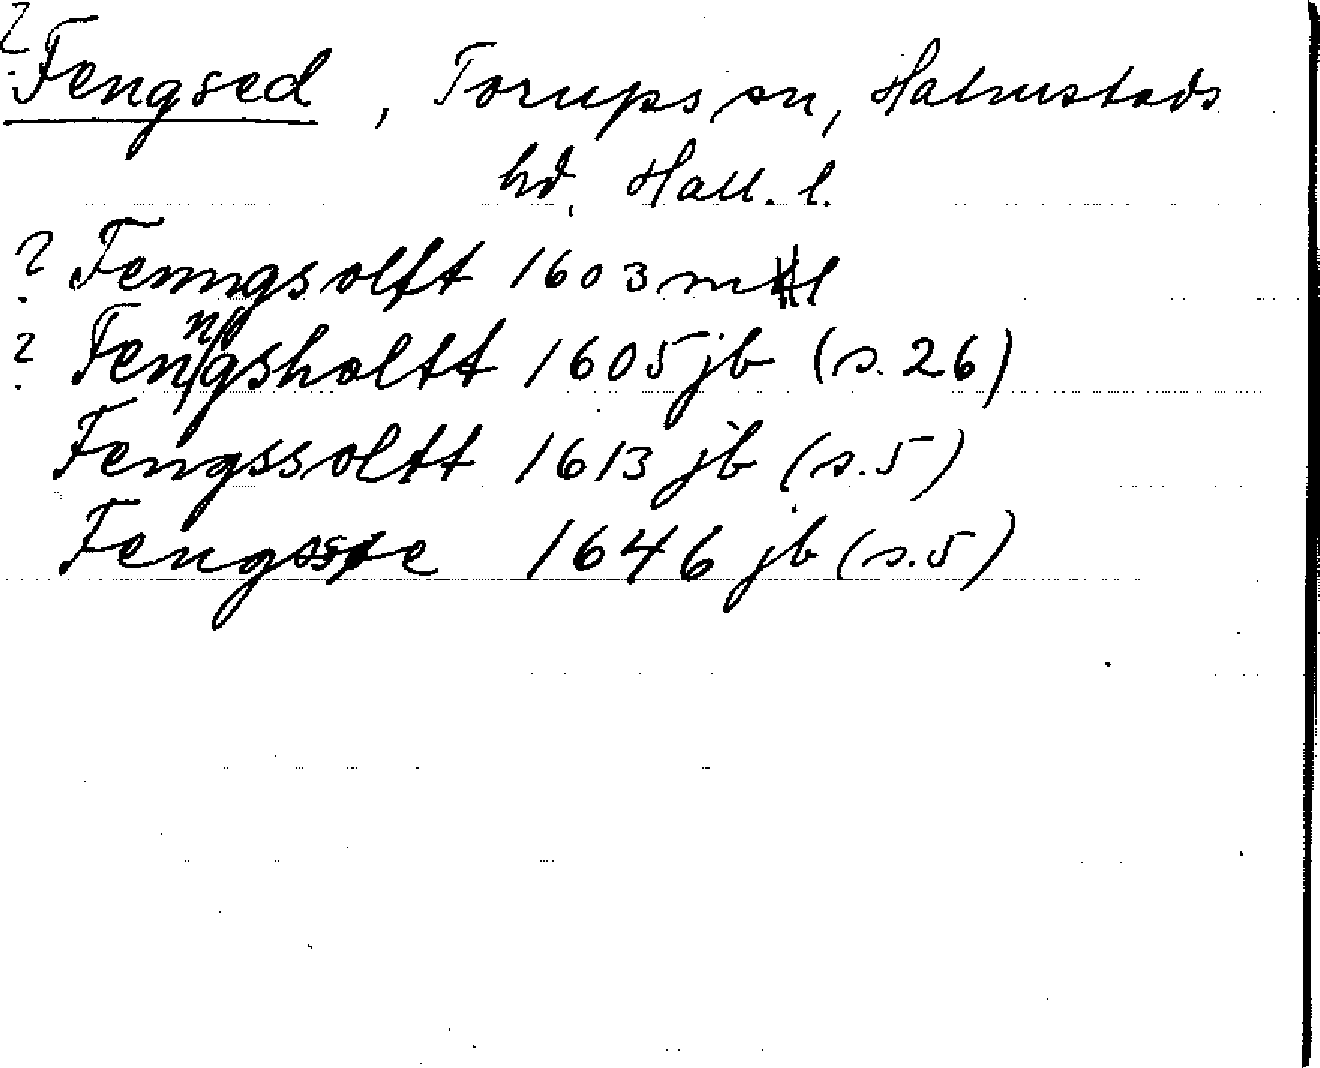 ? Fengsed, Torups sn, Halmstads
hd, Hall. l.
? Fenngsolft 1603 mtl
? Fenngsholtt 1605 jb (s. 26)
Fengssoltt 1613 jb (s. 5)
1646 jb (s. 5)